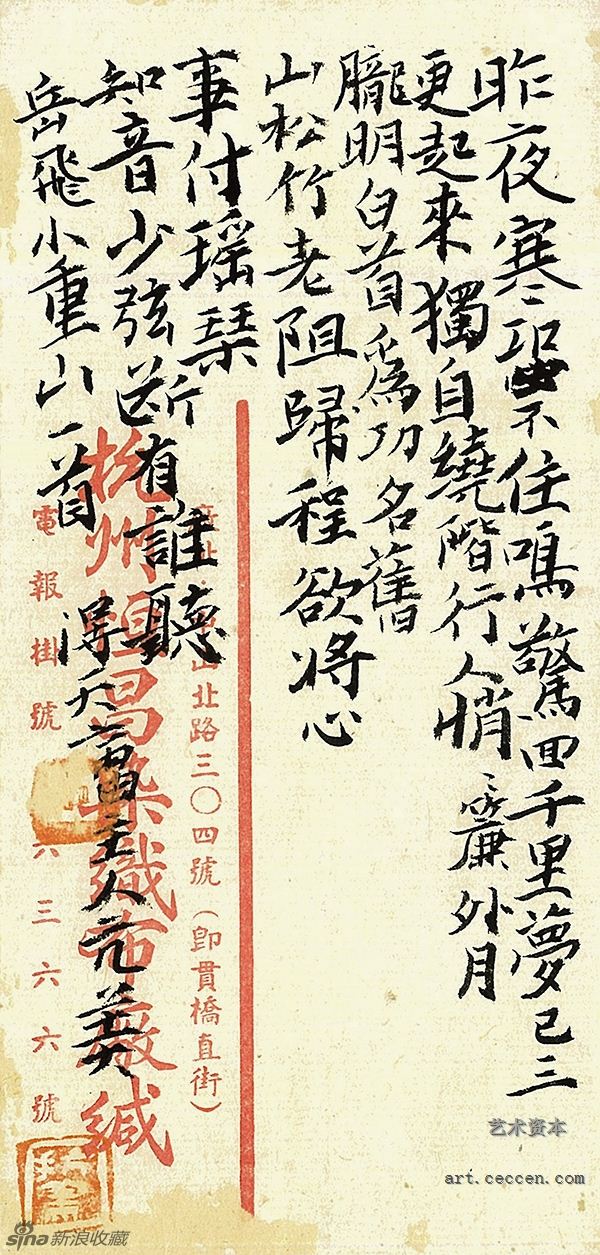 昨夜寒蛩不住鳴驚回千里夢已三
更起來獨自繞階行人悄〻簾外月
朧明白首爲功名舊
山松竹老阻歸程欲將心
事付瑶琴
知音少弦断有誰聽
岳飛小重山一首
主人元美
山北路三〇四號(即貫橋直街)
杭州 昌染織布廠緘
電報掛號 六三六六號
艺术资本
art.ceccen.com
sina新浪收藏